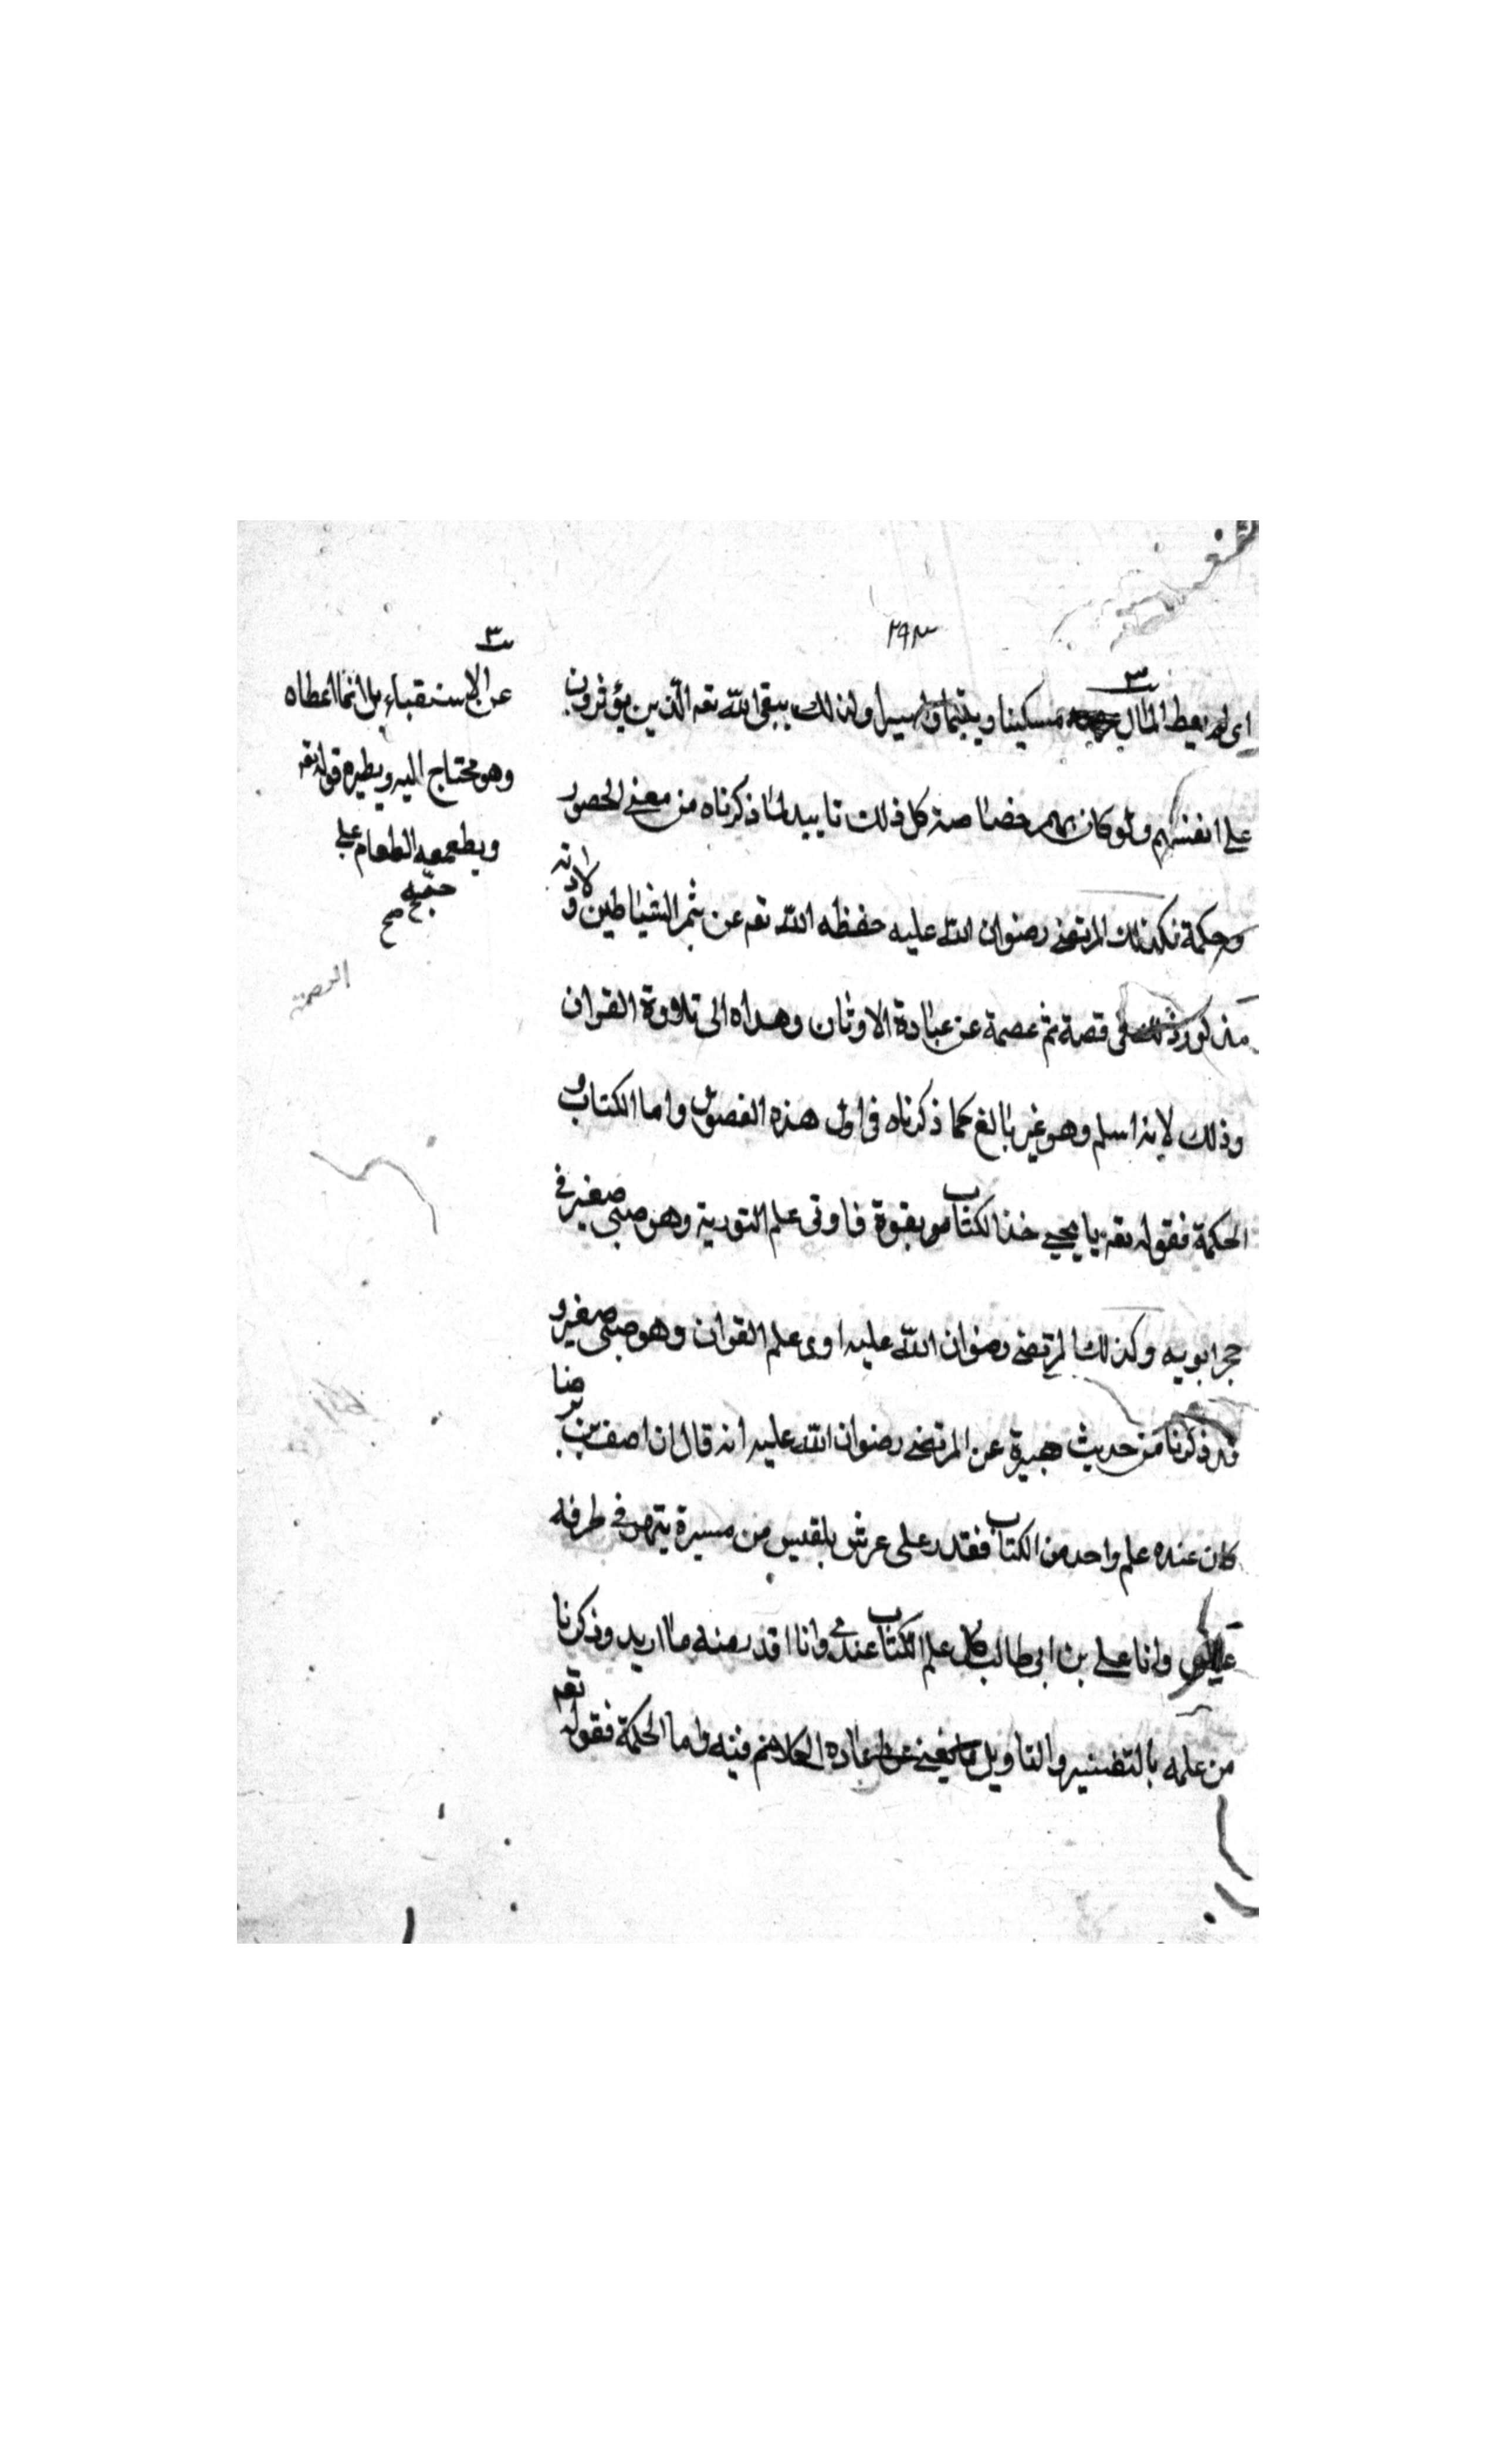 ٢٩٣
اى لم يعط المال مسكينا ويتيما واسيرا ولذلك يبقى الله تعه الذين يؤثرون
على انفسهم ولو كان بهم خصاصة كل ذلك تاييد لما ذكرناه من معنى الحصور
وحكمة فكذلك المرتضى رضوان الله عليه حفظه الله تعه عن شر الشياطين ولادته
مذكور فى قصة ثم عصمة عن عبادة الاوثان وهداه الى تلاوة القران
وذلك لانه اسلم وهو غير بالغ كما ذكرناه فى اول هذه الفصول واما الكتاب و
الحكمة فقوله تعه يا يحيى خذ الكتاب بقوة فاوتى علم التورية وهو صبى صغير فى
حجر ابويه وكذلك المرتضى رضوان الله عليه اوى علم القران وهو صبى صغير و
قد ذكرنا من حديث هبيرة عن المرتضى رضوان الله عليه انه قال ان اصف بن برضيا
كان عنده علم واحد من الكتاب فقدر على عرش بلقيس من مسيرة شهر فى طرفة
عين وانا على بن ابى طالب كل علم الكتاب عندى وانا اقدر منه ما اريد وذكرنا
من علمه بالتفسير والتاويل ما يغنى عن اعادة الكلام فيه واما الحكمة فقوله تعه
٣
عن الاستقباء بل انما اعطاه
وهو محتاج اليه ونظيره قوله تعه
ويطعمون الطعام على
حبه
صح